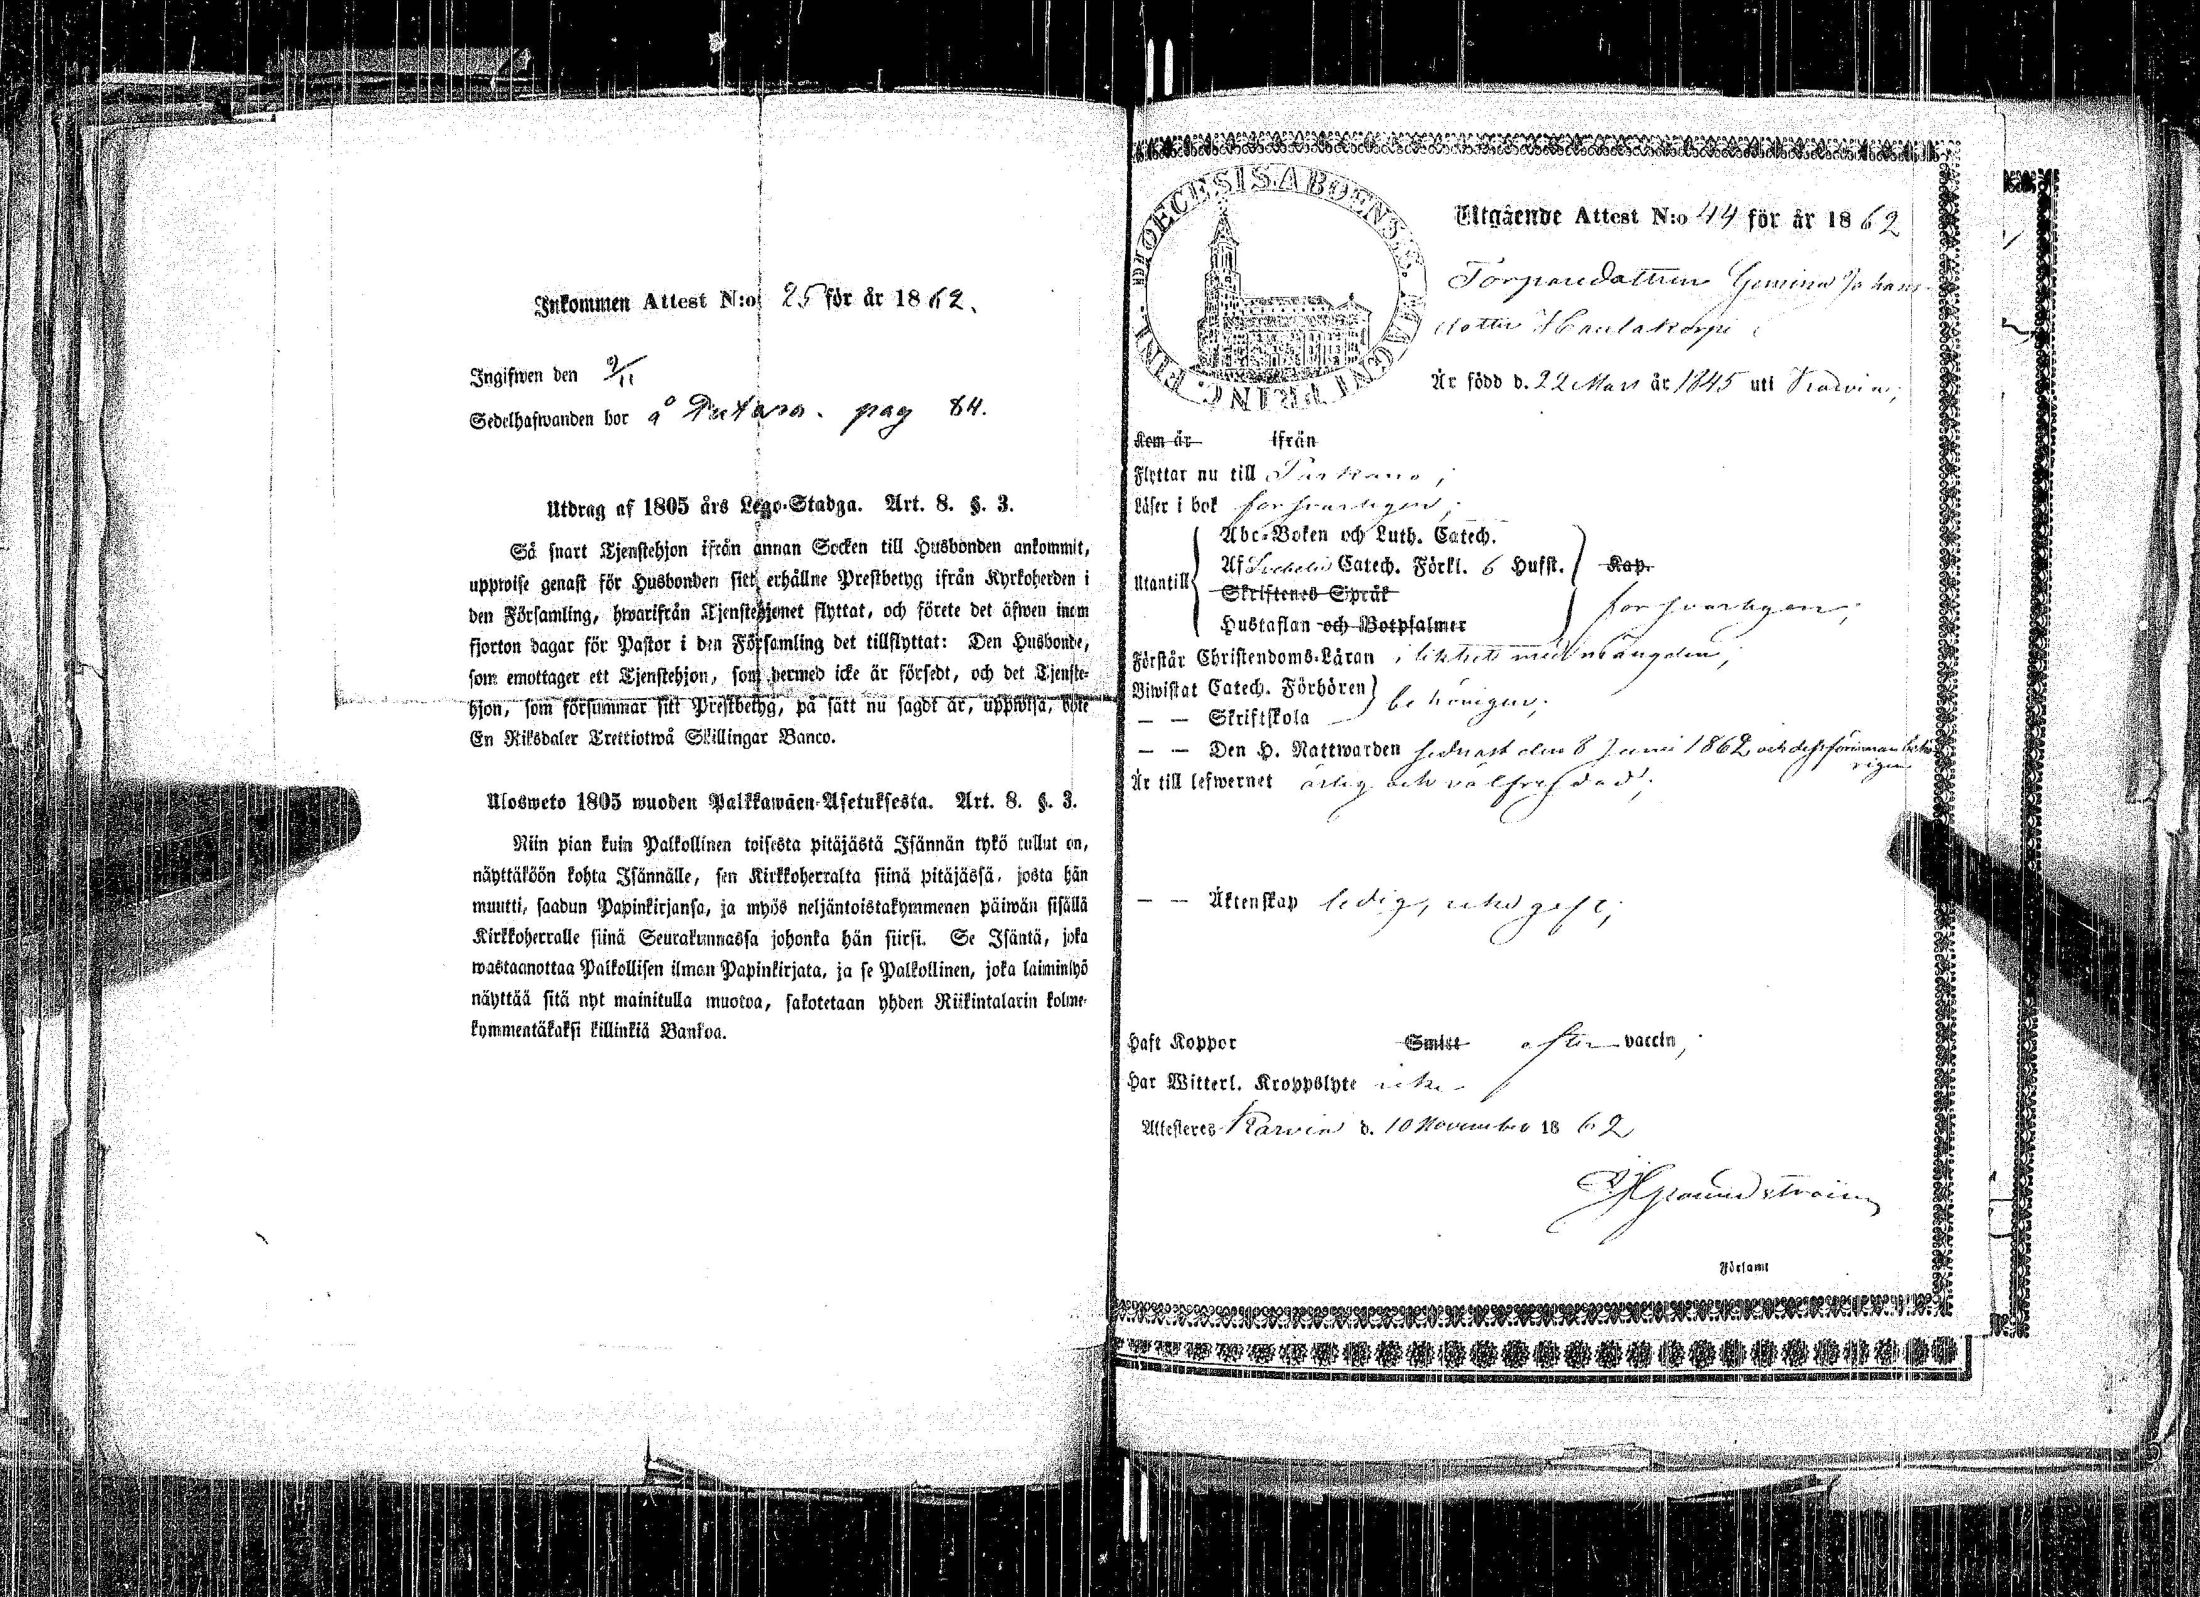 Inkommen Attest N:o 25 för år 1862.
Ingifwen den 9/11
Sedelhafwanden bor å pag 84.
Utdrag af 1805 års Lego-Stadga. Art. 8. §. 3.
Så snart Tjenstehjon ifrån annan Socken till Husbonden ankommit,
uppwise genast för Husbonden sitt erhållne Prestbetyg ifrån Kyrkoherden i
den Församling, hwarifrån Tjenstehjonet flyttat, och förete det äfwen inom
fjorton dagar för Pastor i den Församling det tillflyttat: Den Husbonde,
som emottager ett Tjenstehjon, som dermed icke är försedt, och det Tjenste-
hjon, som försummar sitt Prestbetyg, på sätt nu sagdt är, uppwisa, böte
En Riksdaler Trettiotwå Skillingar Banco.
Ulosweto 1805 wuoden Palkkawäen-Asetuksesta. Art. 8. §. 3.
Niin pian kuin Palkollinen toisesta pitäjästä Isännän tykö tullut on,
näyttäköön kohta Isännälle, sen Kirkkoherralta siinä pitäjässä, josta hän
muutti, saadun Papinkirjansa, ja myös neljäntoistakymmenen päiwän sisällä
Kirkkoherralle siinä Seurakunnassa johonka hän siirsi. Se Isäntä, joka
wastaanottaa Palkollisen ilman Papinkirjata, ja se Palkollinen, joka laiminlyö
näyttää sitä nyt mainitulla muotoa, sakotetaan yhden Riikintalarin kolme-
kymmentäkaksi killinkiä Bankoa.
DIOECESIS ABOENSIS. MAGNI PRINC. FINL.
Utgående Attest N:o 44 för år 1862
Torparedottren Johans-
dotter Haulakorpi
Är född d. 22 Mars år 1845 uti Karvia;
Kom år ifrån
Flyttar nu till Parkano;
Läser i bok försvarligen;
Utantill
Abc-Boken och Luth. Catech.
Af Catech. Förkl. 6 Hufst. Kap.
Skriftenes Språk
försvarligen;
Hustaflan och Botpsalmer
Förstår Christendoms-Läran i likhet med mängden;
Biwistat Catech. Förhören
behörigen;
— — Skriftskola
— — Den H. Nattwarden sednast den 8 Juni 1862 och dessförinnan behö-
rigen
Är till lefwernet ärlig och välfrejdad;
— — Äktenskap ledig;
Haft Koppor Smitt efter vaccin;
Har Witterl. Kroppslyte icke
Attesteres Karvia d. 10 November 1862
Grounstroëm
Församl